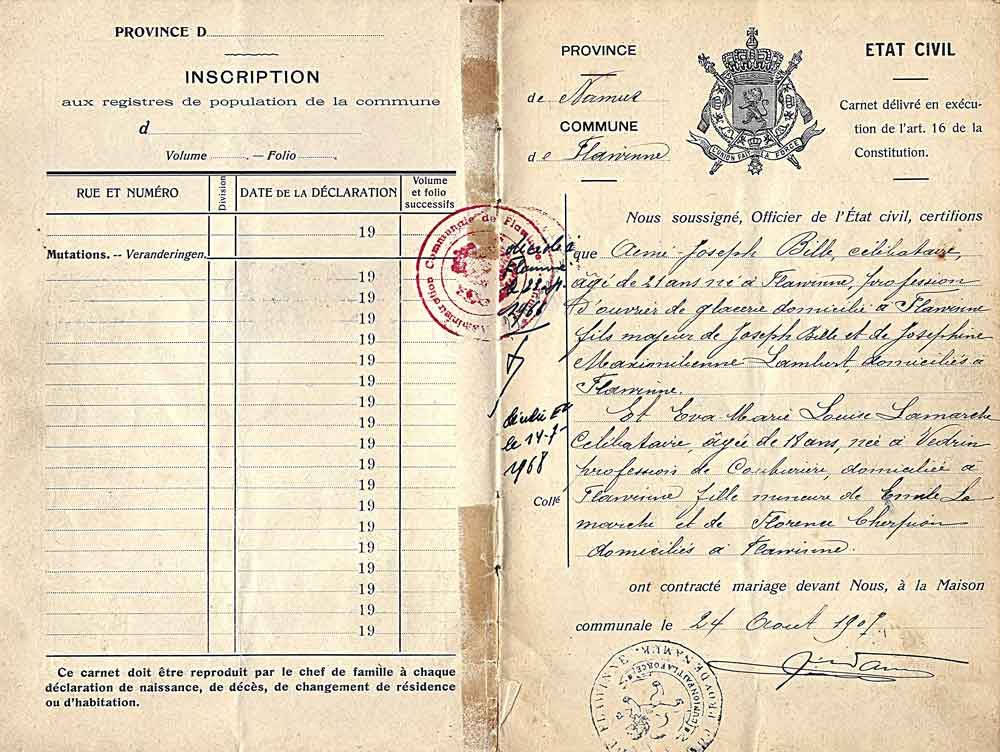 PROVINCE D
INSCRIPTION
aux registres de population de la commune
d
Volume . — Folio .
RUE ET NUMÉRO
Division
DATE DE LA DÉCLARATION
Volume
et folio
successifs
19
Mutations. -- Veranderingen.
19
19
19
19
19
19
19
19
19
19
19
19
19
19
19
19
19
19
Ce carnet doit être reproduit par le chef de famille à chaque
déclaration de naissance, de décès, de changement de résidence
ou d'habitation.
Administration Communale de Flawinne
décédé à
Flawinne
le
décédée
le 14-7-
1968
Collé
PROVINCE
de Namur
COMMUNE
de Flawinne
L'UNION FAIT LA FORCE
ETAT CIVIL
Carnet délivré en exécu-
tion de l'art. 16 de la
Constitution.
Nous soussigné, Officier de l'État civil, certifions
que Aimé-Joseph Bille, célibataire,
âgé de 21 ans né à Flawinne, profession
d'ouvrier de glacerie domicilié à Flawinne
fils majeur de Joseph Bille et de Joséphine
Maximilienne Lambert, domiciliés à
Flawinne.
Et Eva Marie Louise Lamarche
Célibataire, âgée de 18 ans, née à Vedrin
profession de Couturière, domiciliée à
Flawinne fille mineure de Emile La
marche et de Florence Cherpion
domiciliés à Flawinne.
ont contracté mariage devant Nous, à la Maison
communale le 24 Aout 1907
FLAWINNE
PROV. DE NAMUR
L'UNION FAIT LA FORCE